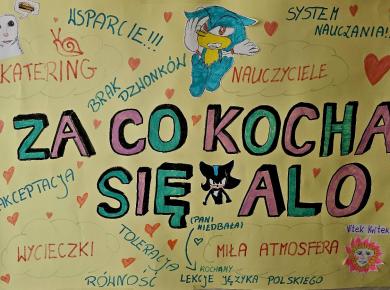 WSPARCIE!!!
SYSTEM
NAUCZANIA!!
KATERING
BRAK
DZWONKÓW
NAUCZYCIELE
ZA CO KOCHA
SIĘ ALO
AKCEPTACJA
(PANI
NIEDBAŁA)
Witek Kwitek
WYCIECZKI
TOLERANCJA
MIŁA ATMOSFERA
KOCHAMY
RÓWNOŚĆ
LEKCJE JĘZYKA POLSKIEGO